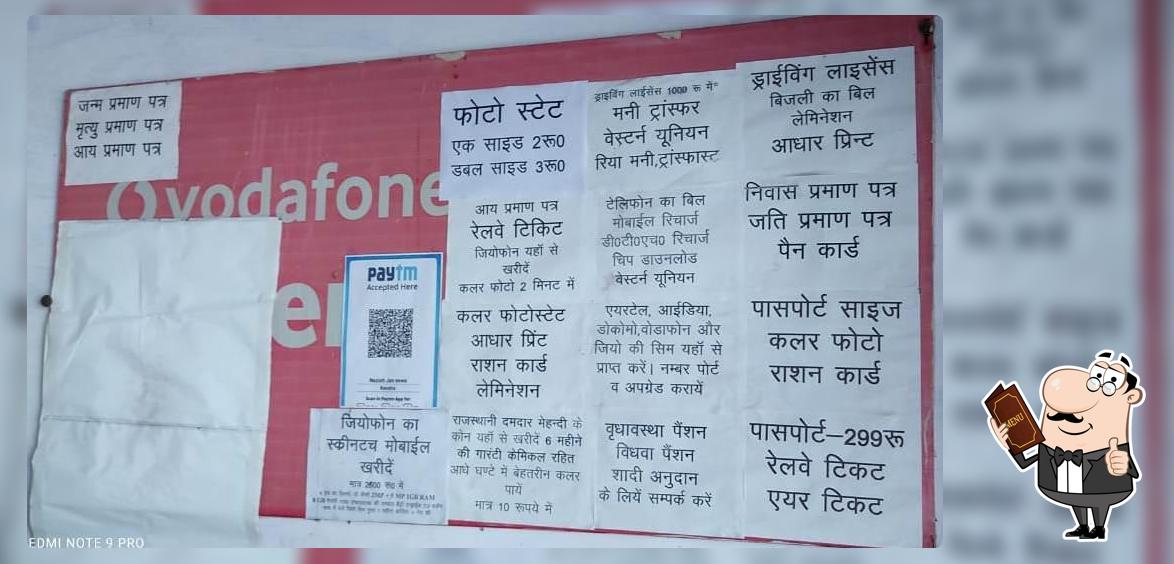 जन्म प्रमाण पत्र
मृत्यु प्रमाण पत्र
आय प्रमाण पत्र
vodafone
er
paytm
Accepted Here
जियोफोन का
स्कीनटच मोबाईल
खरीदें
मात्र 2500 रू0 में
फोटो स्टेट
एक साइड 2रू0
डबल साइड 3रू0
आय प्रमाण पत्र
रेलवे टिकिट
जियोफोन यहॉ से
खरीदें
कलर फोटो 2 मिनट में
कलर फोटोस्टेट
आधार प्रिंट
राशन कार्ड
लेमिनेशन
राजस्थानी दमदार मेहन्दी के
कोन यहॉ से खरीदें 6 महीने
की गारंटी केमिकल रहित
आधे घण्टे में बेहतरीन कलर
पायें
मात्र 10 रूपये में
ड्राइविंग लाईसेंस 1000 रू में
मनी ट्रांस्फर
वेस्टर्न यूनियन
रिया मनी,ट्रांस्फास्ट
टेलिफोन का बिल
मोबाईल रिचार्ज
डी0टी0एच0 रिचार्ज
चिप डाउनलोड
वेस्टर्न यूनियन
एयरटेल, आईडिया,
डोकोमो,वोडाफोन और
जियो की सिम यहॉ से
प्राप्त करें। नम्बर पोर्ट
व अपग्रेड करायें
वृधावस्था पैंशन
विधवा पैंशन
शादी अनुदान
के लियें सम्पर्क करें
ड्राईविंग लाइसेंस
बिजली का बिल
लेमिनेशन
आधार प्रिन्ट
निवास प्रमाण पत्र
जति प्रमाण पत्र
पैन कार्ड
पासपोर्ट साइज
कलर फोटो
राशन कार्ड
पासपोर्ट–299रू
रेलवे टिकट
एयर टिकट
MENU
EDMI NOTE 9 PRO